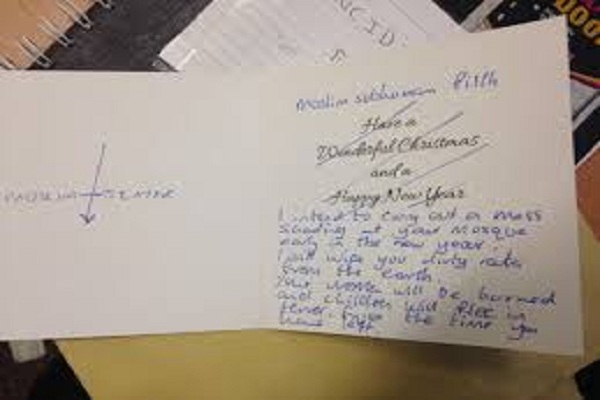 NCID
moslim subhuman filth
Have a
Wonderful Christmas
and a
Happy New Year
I intend to carry out a mass
shooting at your mosque
early in the new year.
I will wipe you dirty rats
from the earth
Your women will be burned
and children will flee in
terror. Enjoy the time you
have left